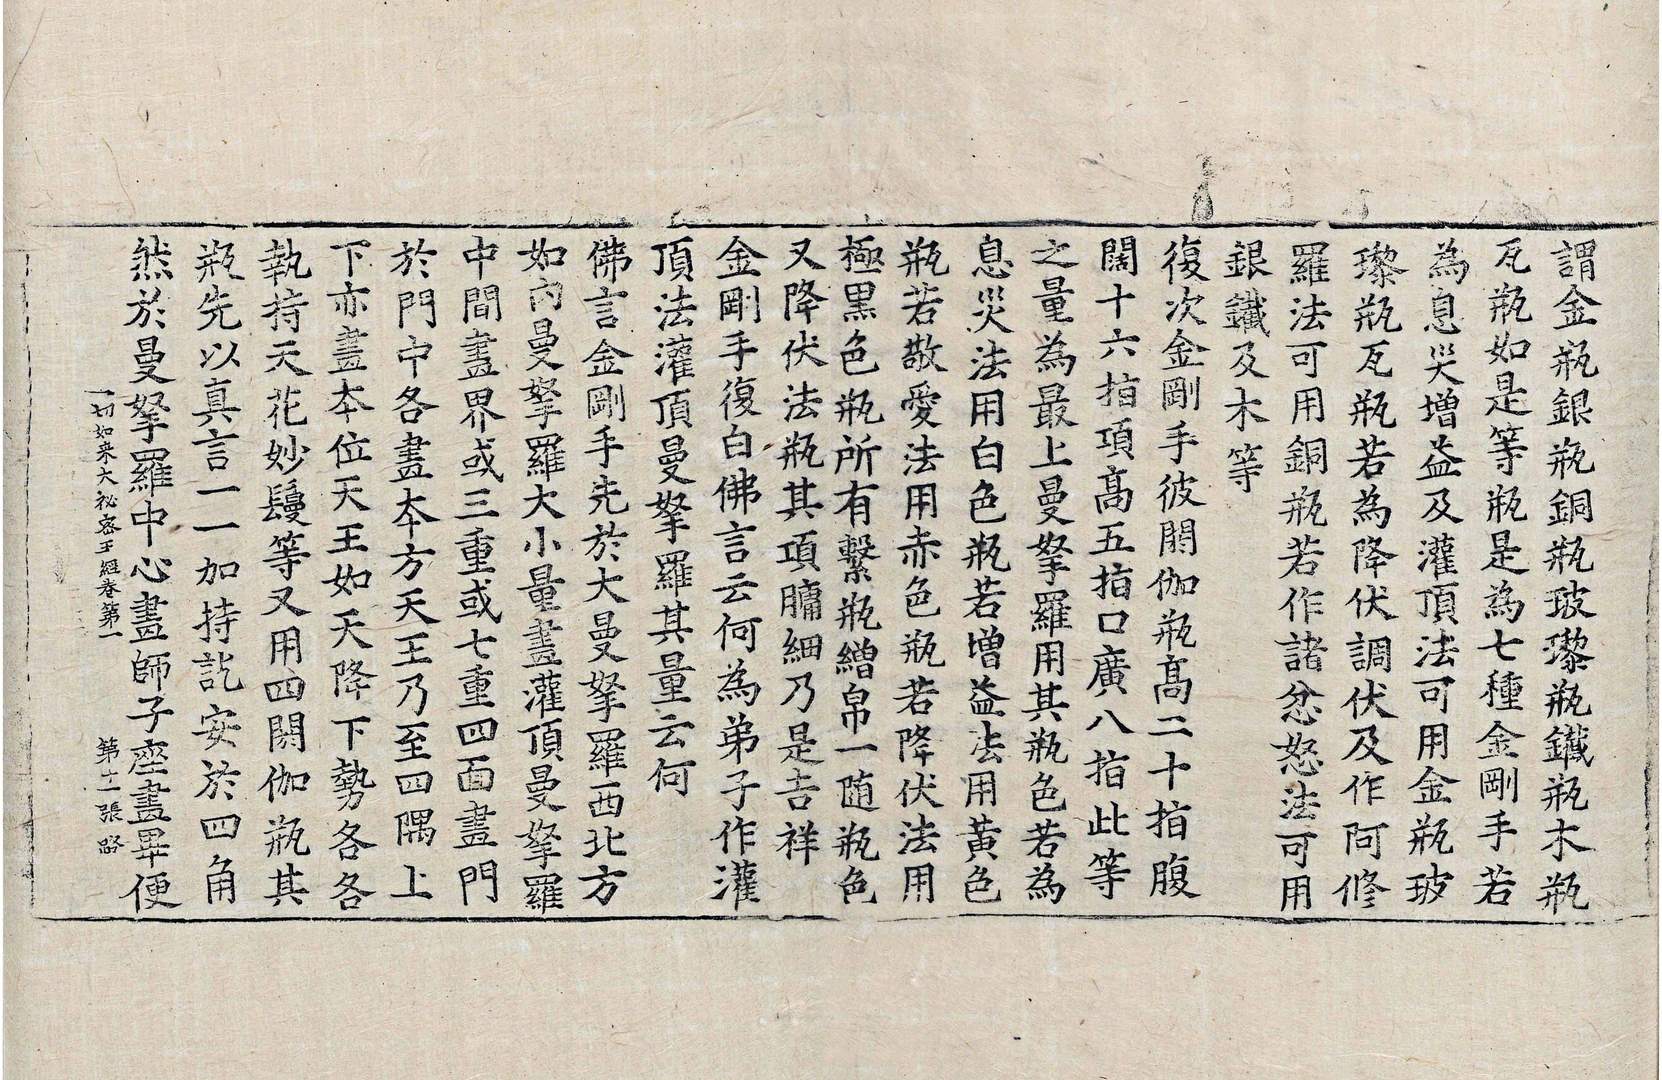 謂金瓶銀瓶銅瓶玻瓈瓶鐵瓶木瓶
瓦瓶如是等瓶是為七種金剛手若
為息災增益及灌頂法可用金瓶玻
瓈瓶瓦瓶若為降伏調伏及作阿修
羅法可用銅瓶若作諸忿怒法可用
銀鐵及木等
復次金剛手彼閼伽瓶髙二十指腹
闊十六指項髙五指口廣八指此等
之量為最上曼拏羅用其瓶色若為
息災法用白色瓶若增益法用黃色
瓶若敬愛法用赤色瓶若降伏法用
極黒色瓶所有繫瓶繒帛一隨瓶色
又降伏法瓶其項𦟛細乃是吉祥
金剛手復白佛言云何為弟子作灌
頂法灌頂曼拏羅其量云何
佛言金剛手先於大曼拏羅西北方
如內曼拏羅大小量畫灌頂曼拏羅
中間畫界或三重或七重四面畫門
於門中各畫本方天王乃至四隅上
下亦畫本位天王如天降下勢各各
執持天花妙鬘等又用四閼伽瓶其
瓶先以真言一一加持訖安於四角
然於曼拏羅中心畫師子座畫畢便
一切如来大祕密王經卷第一 第十一張 路